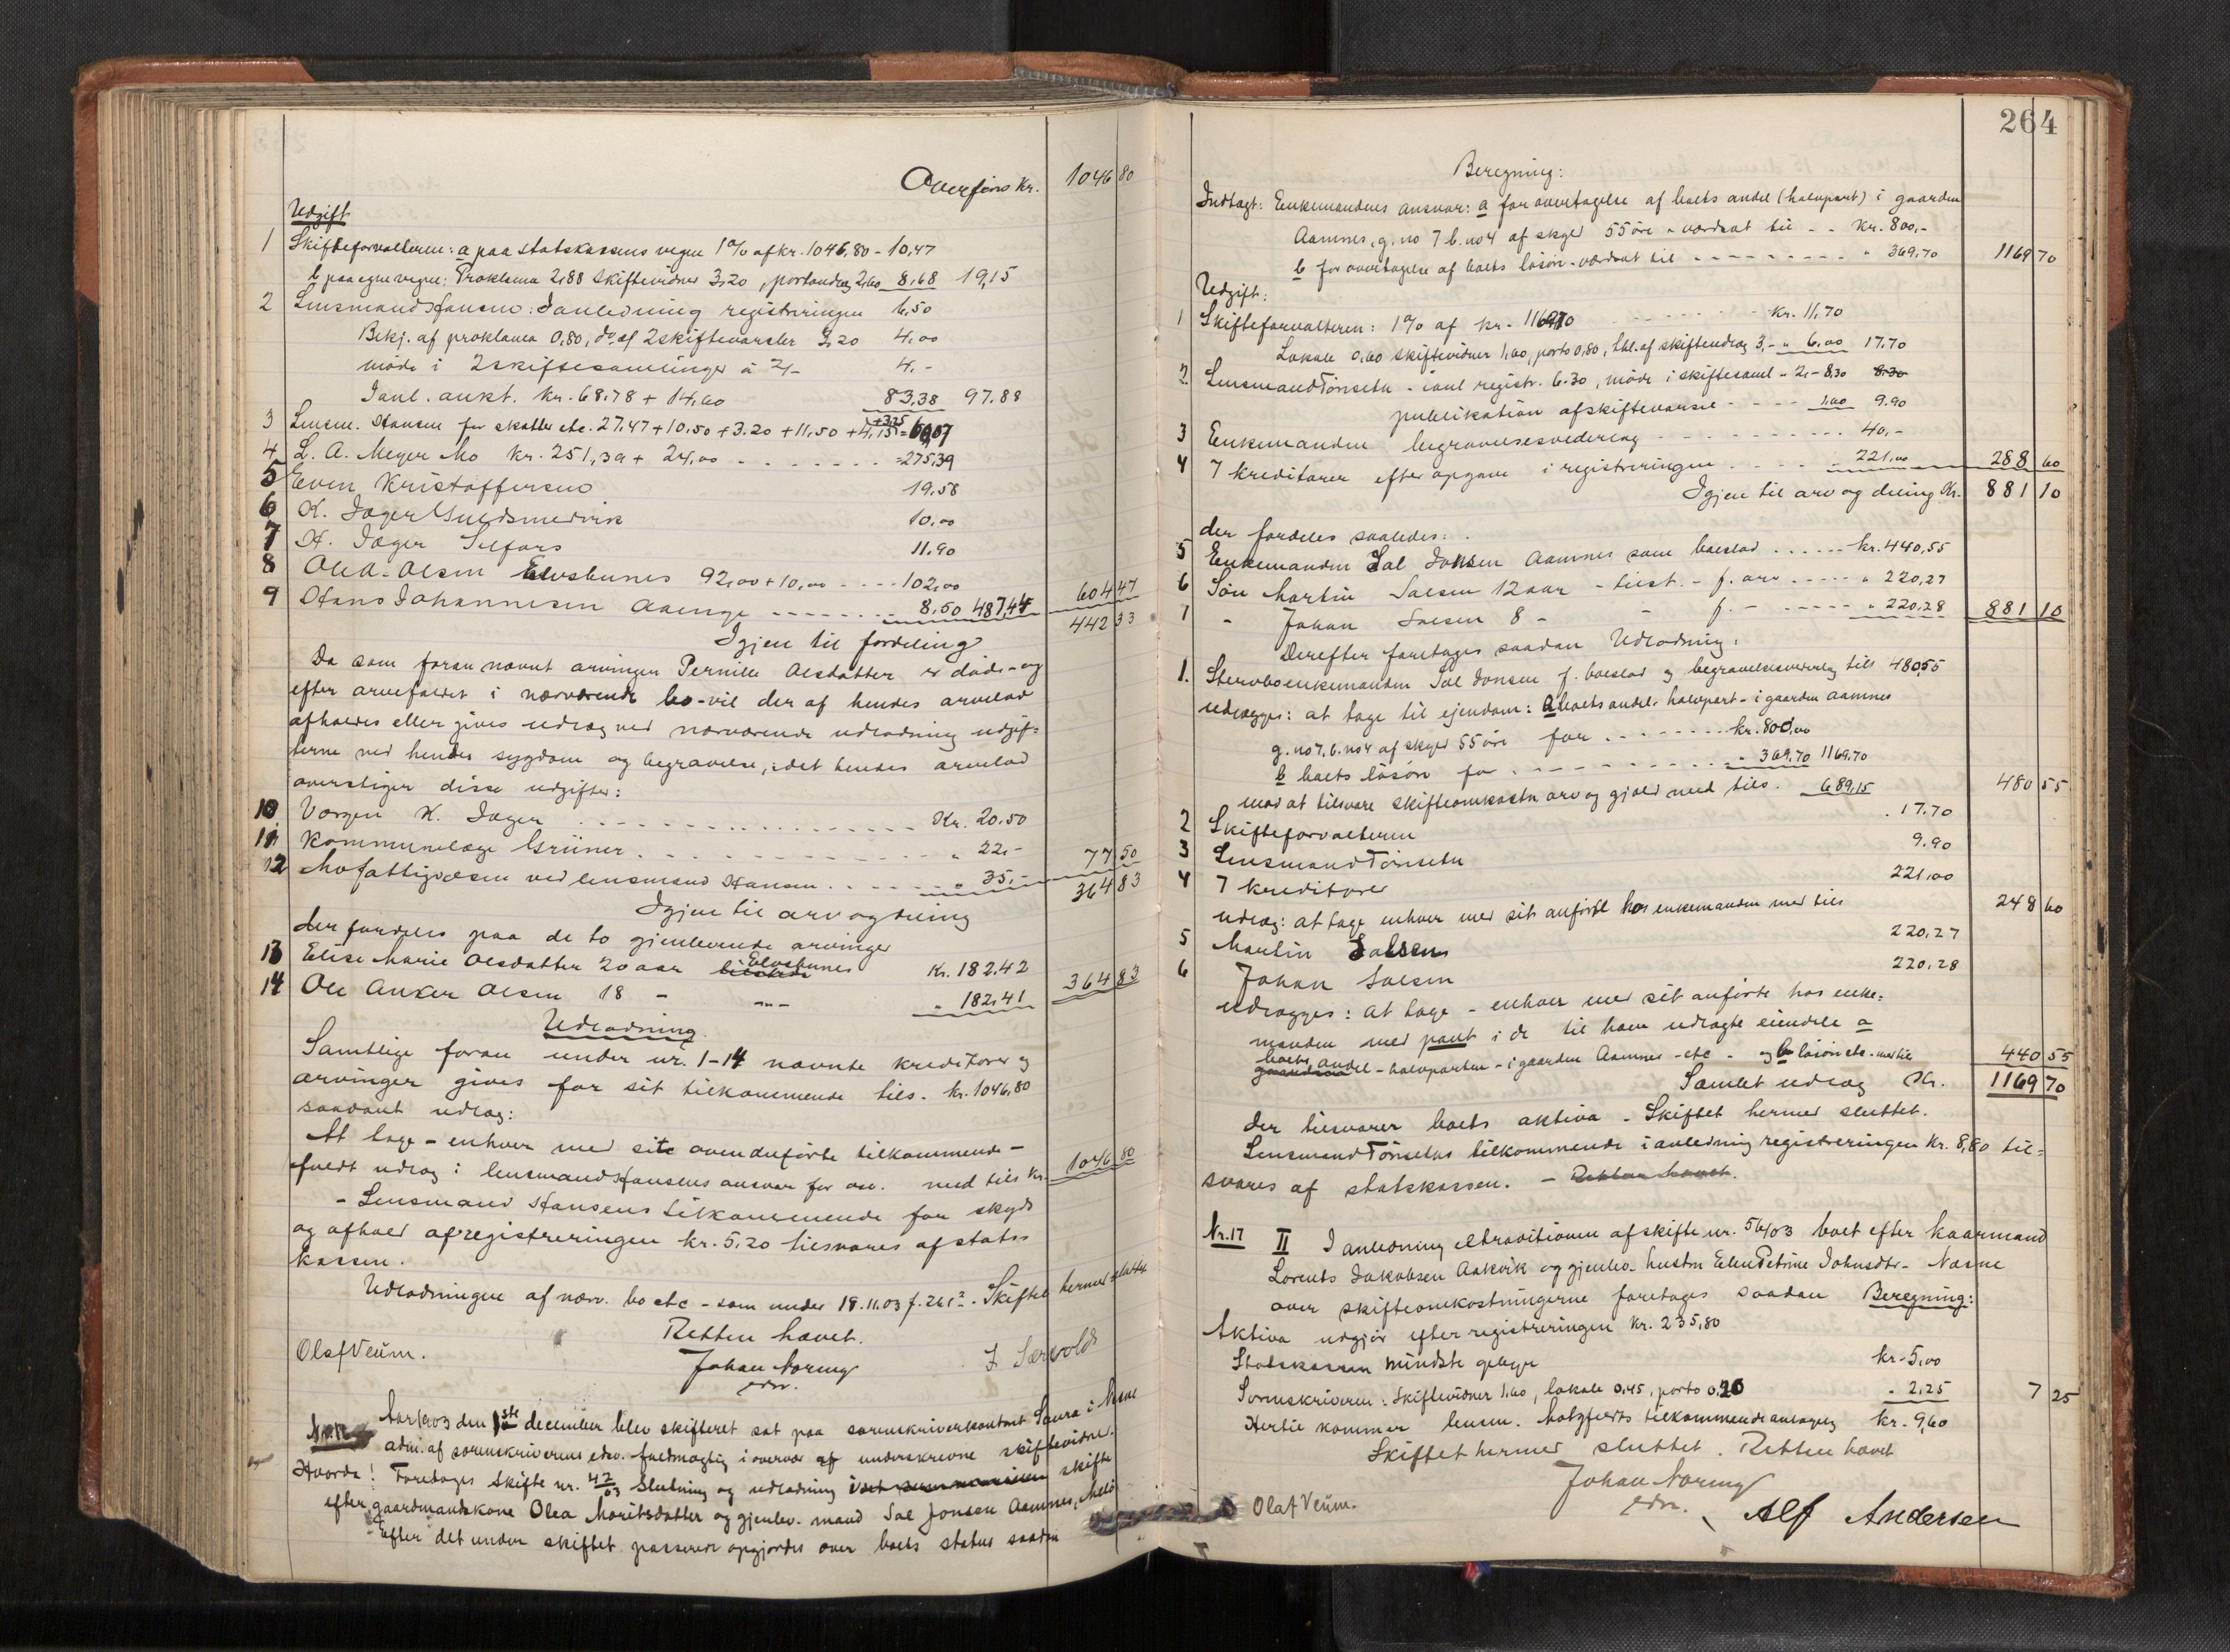 Overføres Kr. 1046 80
Udgift
1 Skifteforvalteren: a paa statskassens vegne 1% af kr. 1046,80 - 10,47
b paa egne vegne: Proklama 2,88 Skiftevidner 3,20, portoudlæg 2,60 8,68 19,15
2 Lensmand Hansen: I anledning registreringen 6,50
Bekj. af proklama 0,80, do af 2 skiftevarsler 3,20 4,00
møde i 2 skiftesamlinger à 2/- 4,-
I anl. aukt. kr. 68.78 + 14,60 83,38 97.88
3 Lensm. Hansen for skatter etc. 27.47 + 10,50 + 3.20 + 11,50 + 4,15 +3,25 = 60,07
4 L. A. Meyer Mo kr. 251,39 + 24,00 - - - - - - - - =275,39
5 Even Kristoffersen 19.58
6 K. Jæger Guldsmedvik 10,00
7 H. Jæger Selfors 11.90
8 Ole A. Olsen Elvsbunes 92,00 + 10,00 - - - - 102,00
9 Hans Johannesen Aaenge - - - - - - - 8,50 487,44 604 47
Igjen til fordeling 442 33
Da som foran nævnt arvingen Pernille Olsdatter er død - og
efter arvefaldet i nærværende bo - vil der af hendes arvelod
afholdes eller gives udlæg ved nærværende udlodning udgif=
terne ved hendes sygdom og begravelse, idet hendes arvelod
overstiger disse udgifter:
10 Jørgen K. Jæger - - - - - - - - - - - - Kr. 20.50
11 Kommunelæge Grüner - - - - - - - - - - - " 22,-
12 Mo fattigvæsen ved lensmand Hansen - - - - - - " 35,- 77 50
Igjen til arv og deling 364 83
der fordeles paa de to gjenlevende arvinger
13 Elise Marie Olsdatter 20 aar Elvsbunes Kr. 182.42
14 Ole Anker Olsen 18 - -"- " 182,41 364 83
Udlodning.
Samtlige foran under nr. 1-14 nævnte kreditorer og
arvinger gives for sit tilkommende tils. kr. 1046,80
saadant udlæg:
At tage - enhver med sit ovenanførte tilkommende -
fuldt udlæg i lensmand Hansens ansvar for auk. med tils kr. 1046 80
- Lensmand Hansens tilkommende for skyds
og afhold af registreringen kr. 5.20 tilsvares af stats
kassen.
Udlodningen af nærv. bo etc - som under 18.11.03 f. 261². Skiftet hermed sluttet.
Retten hævet.
Olaf Veum. Johan Noring J. Særvold
edsv.
Aar 1903 den 1ste december blev skifteret sat paa sorenskriverkontoret Saura i Nesne
adm. af sorenskriverens edsv. fuldmægtig i overvær af underskrevne skiftevidner.
Hvorda! Foretages Skifte nr. 42/03 Slutning og udlodning i skifte
efter gaardmandskone Olea Moritsdatter og gjenlev. mand Sal Jonsen Aamnes, Melø
efter det under skiftet passerede opgjordes over boets status saadan
264
Beregning:
Indtægt: Enkemandens ansvar: a for overtagelse af boets andel (halvpart) i gaarden
Aamnes, g. no 7 b. no 4 af skyld 55 øre - værdsat til - - kr. 800,-
b for overtagelse af boets løsøre - værdsat til - - - - - - - - - " 369.70 1169 70
Udgift:
1 Skifteforvalteren: 1% af kr. 1169,70 - - - - - - - kr. 11,70
Lokale 0,60 skiftevidner 1,60, porto 0,80, bkl. af skifteudlæg 3,- " 6,00 17.70
2 Lensmand Tønseth - i anl registr. 6.30, møde i skiftesaml - 2,- 8,30 8.30
publikation af skiftevarsel - - - - 1,60 9.90
3 Enkemanden begravelsesvederlag - - - - - - - - - - - 40,-
4 7 kreditorer efter opgave i registreringen - - - - - 221,00 288 60
Igjen til arv og deling Kr. 881 10
der fordeles saaledes:
5 Enkemanden Sal Jonsen Aamnes som boeslod - - - - - - kr. 440,55
6 Søn Martin Salsen 12 aar - tilst. - f. arv - - - - - " 220,27
7 - Johan Salsen 8 - - f. - - - - - - " 220.28 881 10
Derefter foretages saadan Udlodning:
1. Stervboenkemanden Sal Jonsen f. boeslod og begravelsesvederlag tils 480,55
udlægges: at tage til ejendom: a boets andel - halvpart - i gaarden Aamnes
g. no 7, b. no 4 af skyld 55 øre for - - - - - - - - kr. 800,00
b boets løsøre for - - - - - - - - - - - " 369.70 1169.70
mod at tilsvare skifteomkostn arv og gjæld med tils. 689.15 480 55
2 Skifteforvalteren . 17.70
3 Lensmand Tønseth 9.90
4 7 kreditorer 221,00
udlæg: at tage enhver med sit anførte hos enkemanden med tils 248 60
5 Martin Salsen 220,27
6 Johan Salsen 220,28
udlægges: at tage - enhver med sit anførte hos enke=
manden med pant i de til ham udlagte eiendele a
boets andel - halvparten - i gaarden Aamnes - etc - og b løsøre etc - med tils 440 55
Samlet udlæg Kr. 1169 70
der tilsvarer boets aktiva - Skiftet hermed sluttet.
Lensmand Tønseths tilkommende i anledning registreringen Kr. 8,80 til=
svares af statskassen. - Retten hævet.
Nr. 17 II I anledning extraditionen af skifte nr. 56/03 boet efter kaarmand
Lorents Jakobsen Aakvik og gjenlev. hustru Ellen Petrine Johnsdtr - Nesne
over skifteomkostningerne foretages saadan Beregning:
Aktiva udgjør efter registreringen kr. 235,80
Statskassen mindste gebyr kr. 5,00
Sorenskriveren: Skiftevidner 1,60, lokale 0,45, porto 0,20 " 2,25 7 25
Hertil kommer lensm. Motzfeldts tilkommende kr. 9,60
Skiftet hermed sluttet. Retten hævet
Johan Noring
edsv.
Olaf Veum. Alf Andersen